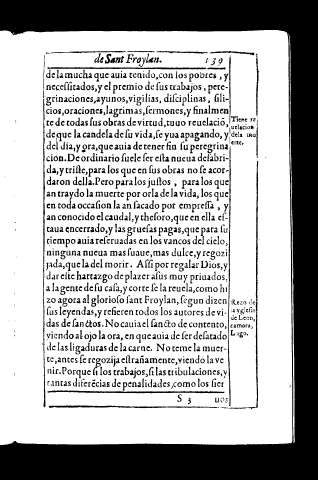 de Sant Froylan. 139
de la mucha que auia tenido, con los pobres, y
necessitados, y el premio de sus trabajos, pere-
grinaciones, ayunos, vigilias, disciplinas, sili-
cios, oraciones, lagrimas, sermones, y finalmen
te de todas sus obras de virtud, tuuo reuelaciõ,
de que la candela de su vida, se yua apagando, y
del dia, y ora, que auia de tener fin su peregrina
cion. De ordinario suele ser esta nueua desabri-
da, y triste, para los que en sus obras no se acor-
daron della. Pero para los justos, para los que
an traydo la muerte por orla de la vida, los que
en toda occasion la an sacado por empressa, y
an conocido el caudal, y thesoro, que en ella es-
taua encerrado, y las gruesas pagas, que para su
tiempo auia reseruadas en los vancos del cielo,
ninguna nueua mas suaue, mas dulce, y regozi
jada, que la del morir. Assi por regalar Dios, y
dar este hartazgo de plazer a sus muy priuados,
a la gente de su casa, y corte se la reuela, como hi
zo agora al glorioso sant Froylan, segun dizen
sus leyendas, y refieren todos los autores de vi-
das de sanctos. No cauia el sancto de contento,
viendo al ojo la ora, en que auia de ser desatado
de las ligaduras de la carne. No teme la muer-
te, antes se regozija estrañamente, viendo la ve
nir. Porque si los trabajos, si las tribulaciones, y
tantas diferẽcias de penalidades, como los sier
S 3 uos
Tiene re
uelacion
de la mu
erte.
Rezo de
la yglesia
de Leon,
çamora,
Lugo.